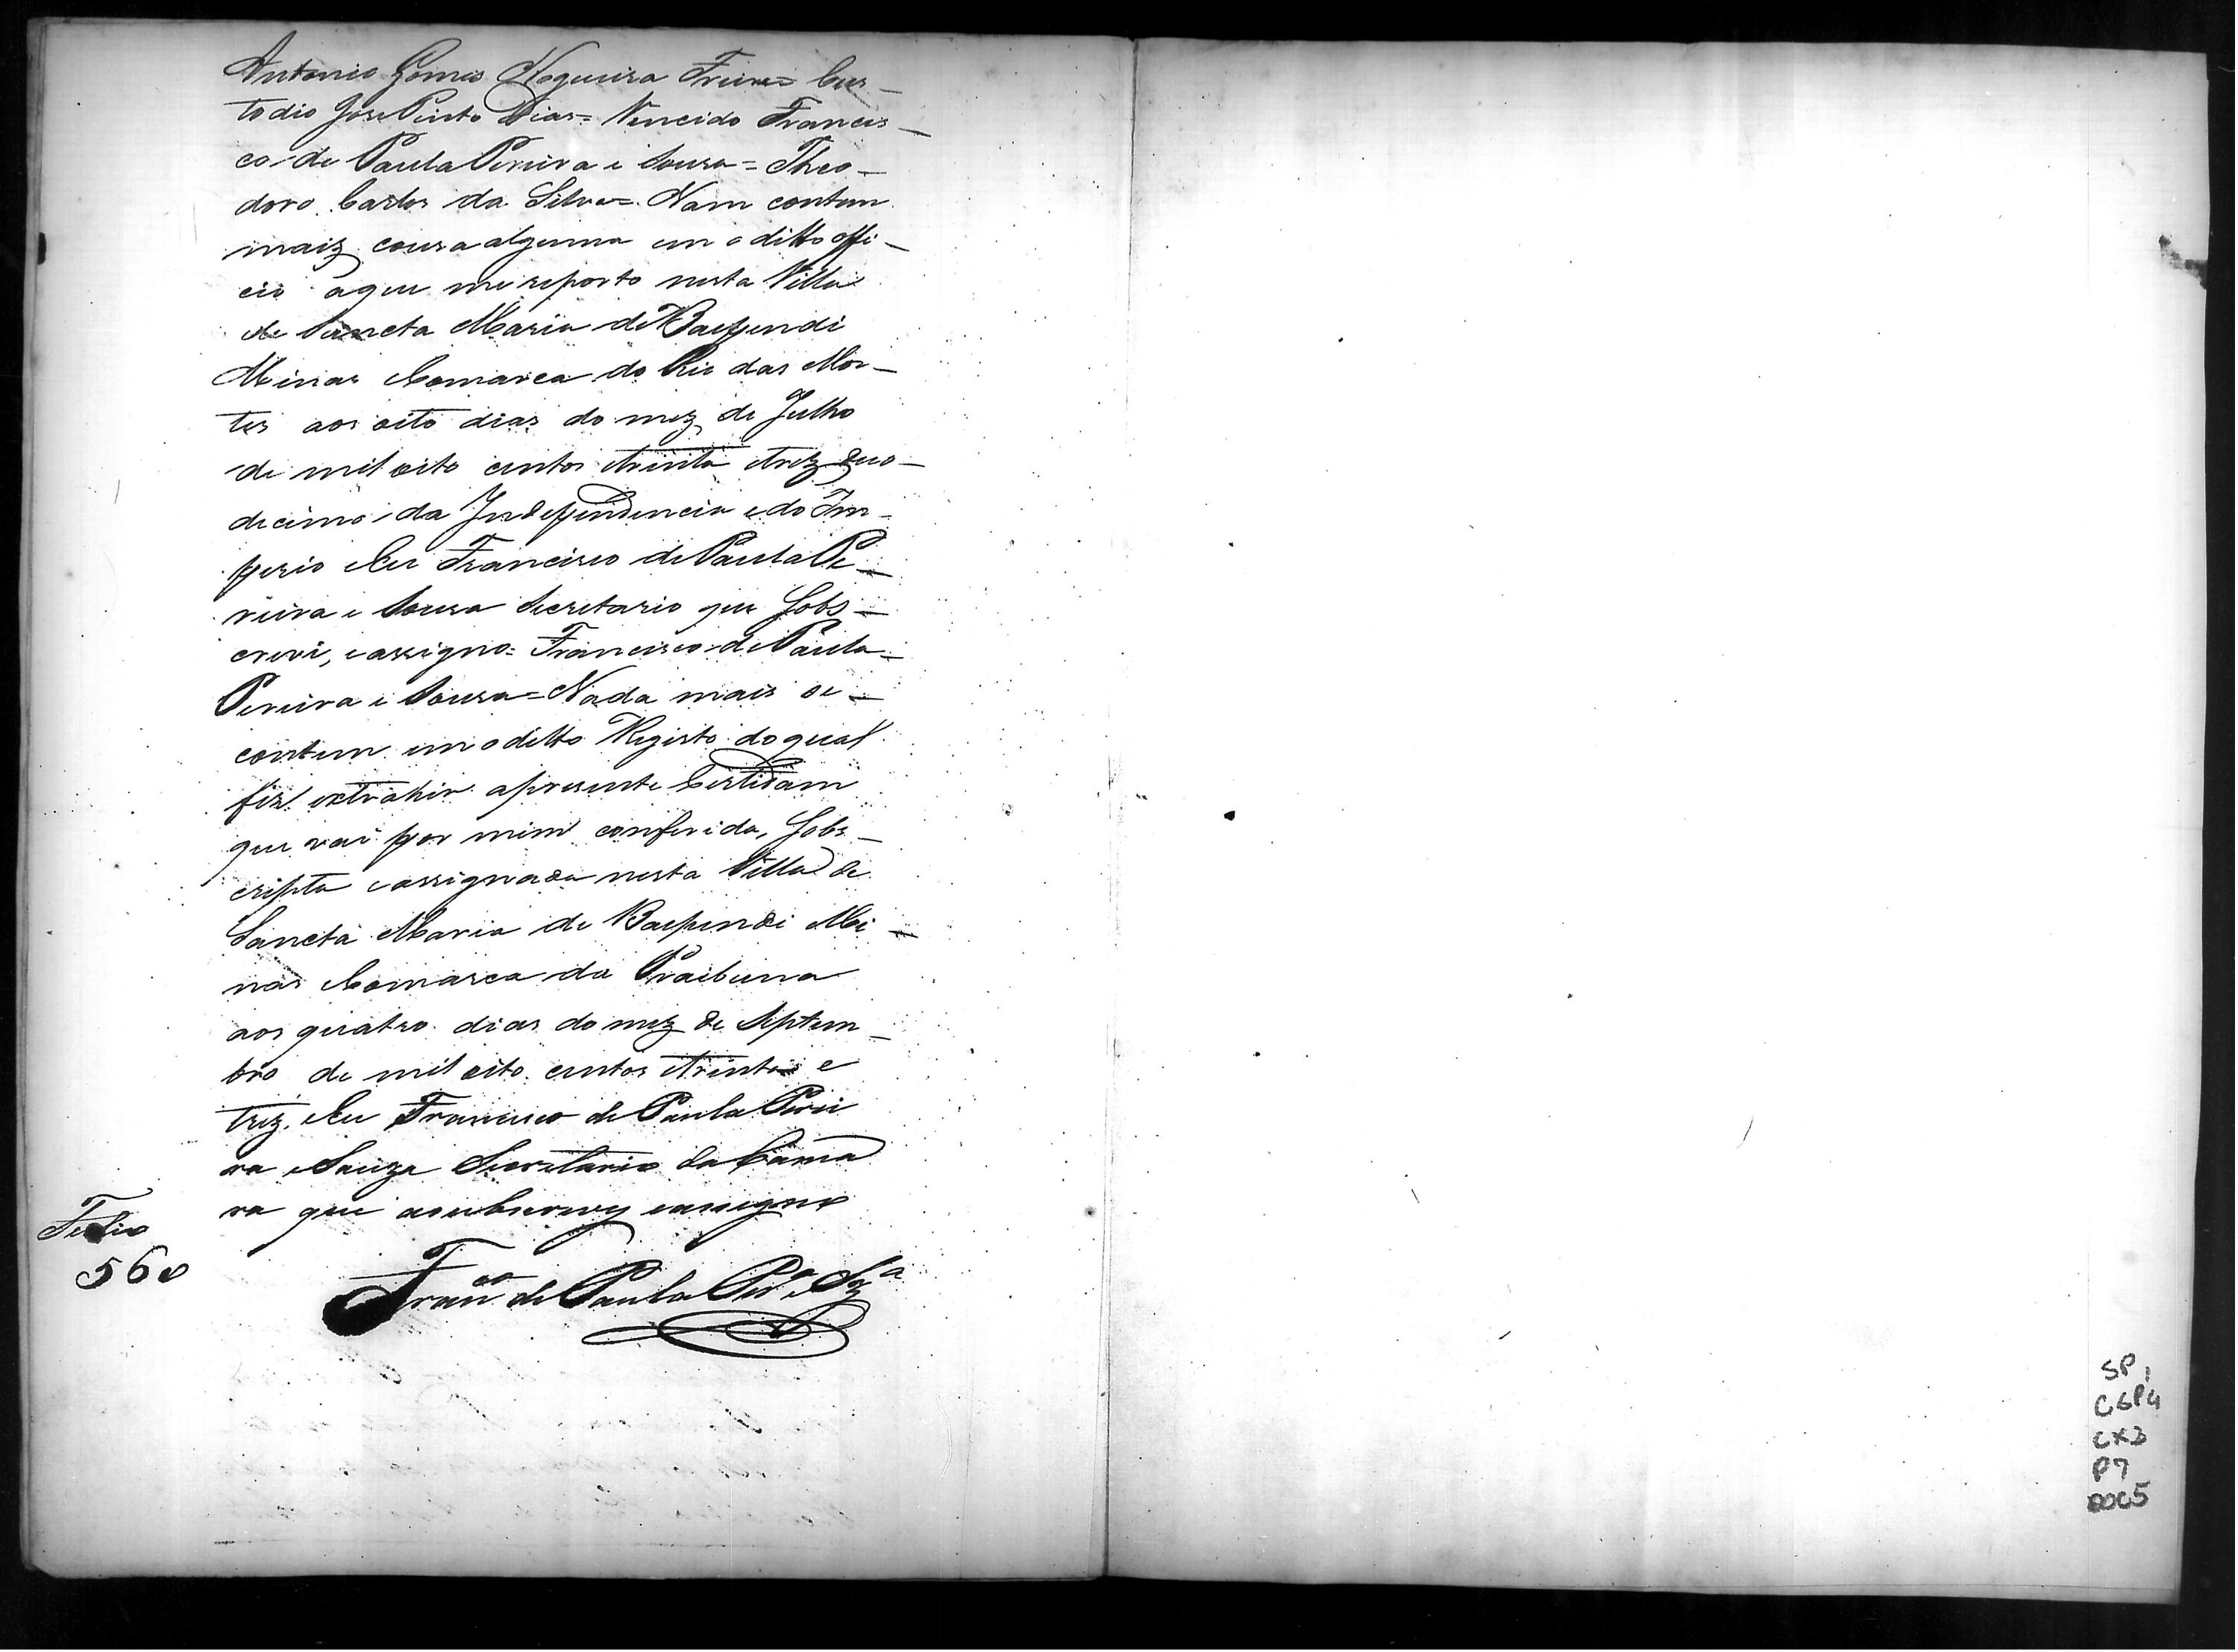 Antonio Gomes Nogueira Freire= Cus-
todio José Pinto Dias= Vencido Francis-
co de Paula Pereira e Sousa= Theo-
doro Carlos da Silva= Nam contem
maiz cousa alguma em o ditto offi-
cio aque me reporto nesta Villa
de Sancta Maria de Baependi
Minas Comarca do Rio das Mor-
tes aos oito dias do mez de Julho
de mil oito centos etrinta etrez Duo-
decimo da Independencia edo Im-
perio eEu Francisco de Paula Pe-
reira e Sousa Secretario que Sobs-
crevi, eassigno= Francisco de Paula
Pereira e Sousa= Nada mais se
contem em o ditto Registo do qual
fiz extrahir apresente Certidam
que vai por mim conferida, Sobs-
cripta eassignada nesta Villa de
Sancta Maria de Baependi Mi-
nas Comarca da Praibuna
aos quatro dias do mez de Septem-
bro de mil oito centos etrinta e
trez. eEu Francisco de Paula Perei
ra eSouza Secretario da Cama
ra que asubscrevy eassigno
Feitio
560
Franco de Paula Pra e Sza
SP1
CGP4
CX3
P7
DOC5